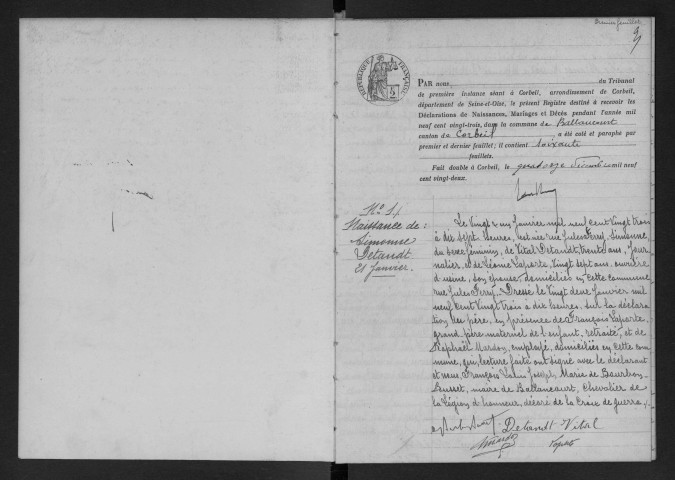 Premier feuillet
RÉPUBLIQUE FRANÇAISE
PAR nous, du Tribunal
de première Instance séant à Corbeil, arrondissement de Corbeil,
département de Seine-et-Oise, le présent Registre destiné à recevoir les
Déclarations de Naissances, Mariages et Décès pendant l'année mil
neuf cent vingt-trois, dans la commune de Ballancourt
canton de Corbeil, a été coté et paraphé par
premier et dernier feuillet; il contient soixante
feuillets.
Fait double à Corbeil, le quatorze Décembre mil neuf
cent vingt-deux.
No 1
Naissance de :
Simonne
Detandt
21 janvier.
Le Vingt & un Janvier mil neuf Cent Vingt trois
à dix sept heures, est née rue Jules Ferry, Simonne,
du sexe féminin, de Vital Detandt, trente ans, jour-
nalier, et de Léonie Laporte, Vingt sept ans, ouvrière
d'usine, son épouse, domiciliés en cette commune
rue Jules Ferry. Dressé le Vingt deux Janvier mil
neuf Cent Vingt trois à dix heures, sur la déclara-
tion du père, en présence de François Laporte,
grand père maternel de l'enfant, retraité, et de
Raphaël Mardon, employé, domiciliés en cette com-
mune, qui, lecture faite ont signé avec le déclarant
et nous François Louis Joseph Marie de Bourbon-
Busset, maire de Ballancourt, Chevalier de
la Légion d'honneur, décoré de la Croix de guerre.
Detandt Vital